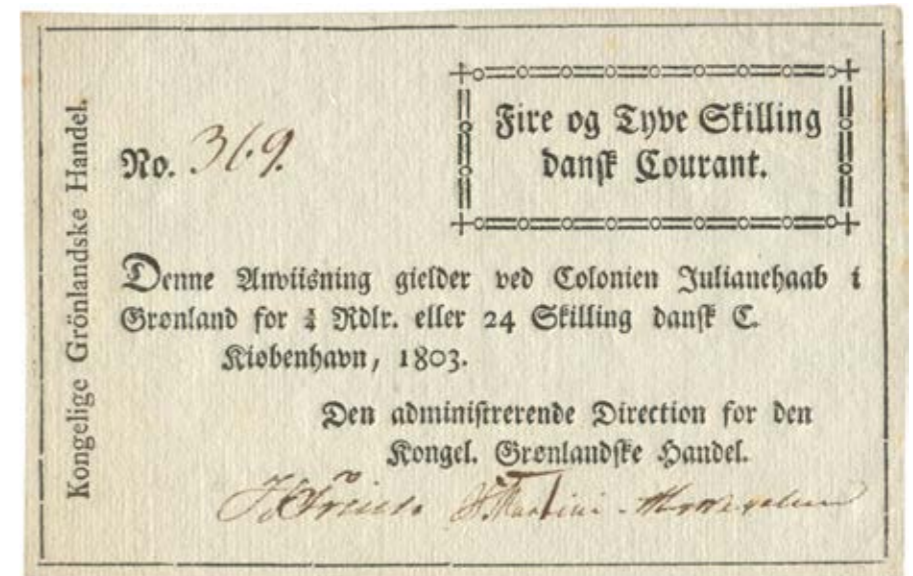 Kongelige Grönlandske Handel.
No. 369.
Fire og Tyve Skilling
dansk Courant.
Denne Anviisning gielder ved Colonien Julianehaab i
Grønland for ¼ Rdlr. eller 24 Skilling dansk C.
Kiøbenhavn, 1803.
Den administrerende Direction for den
Kongel. Grønlandske Handel.
Martini